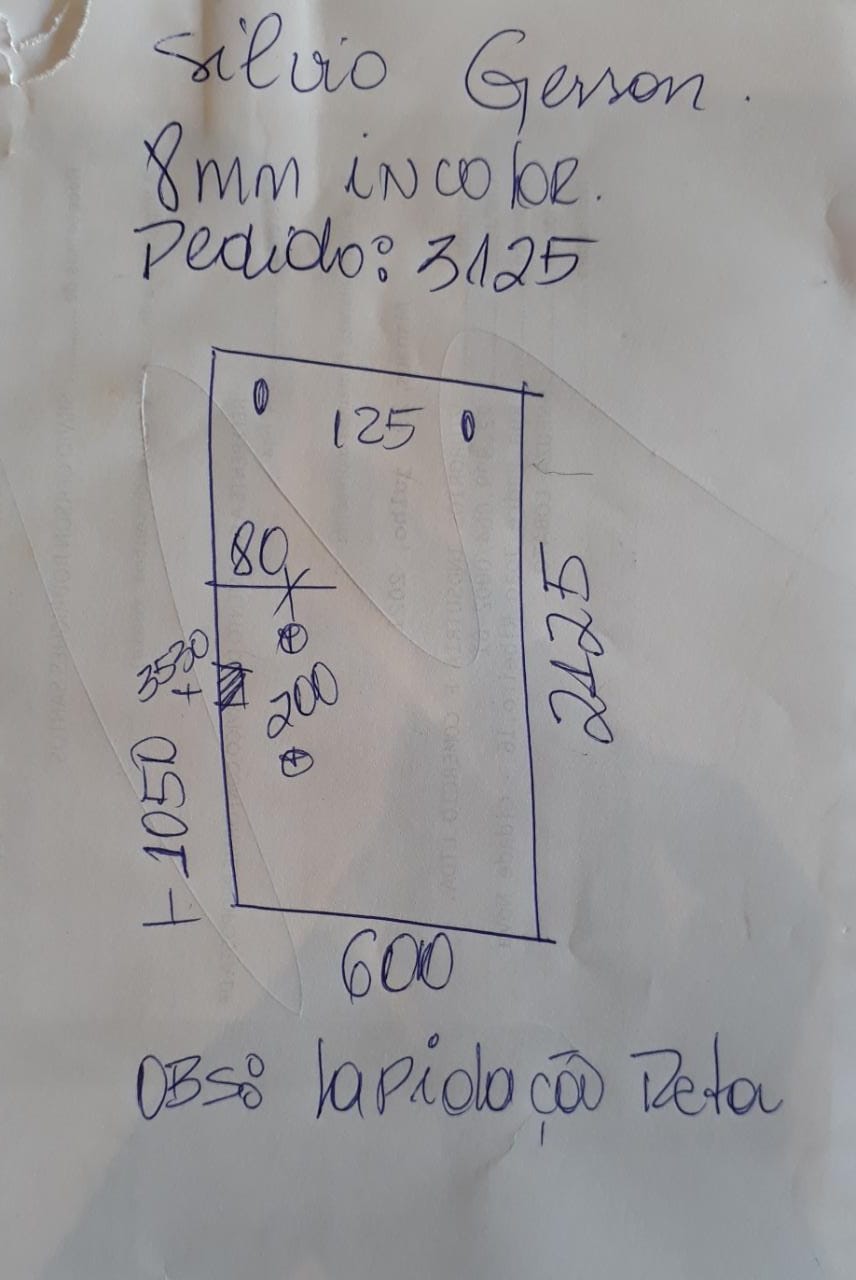 Silvio Gerson.
8mm incolor.
Pedido: 3125
125
80
3530
200
2125
1050
600
OBS: lapidação Reta